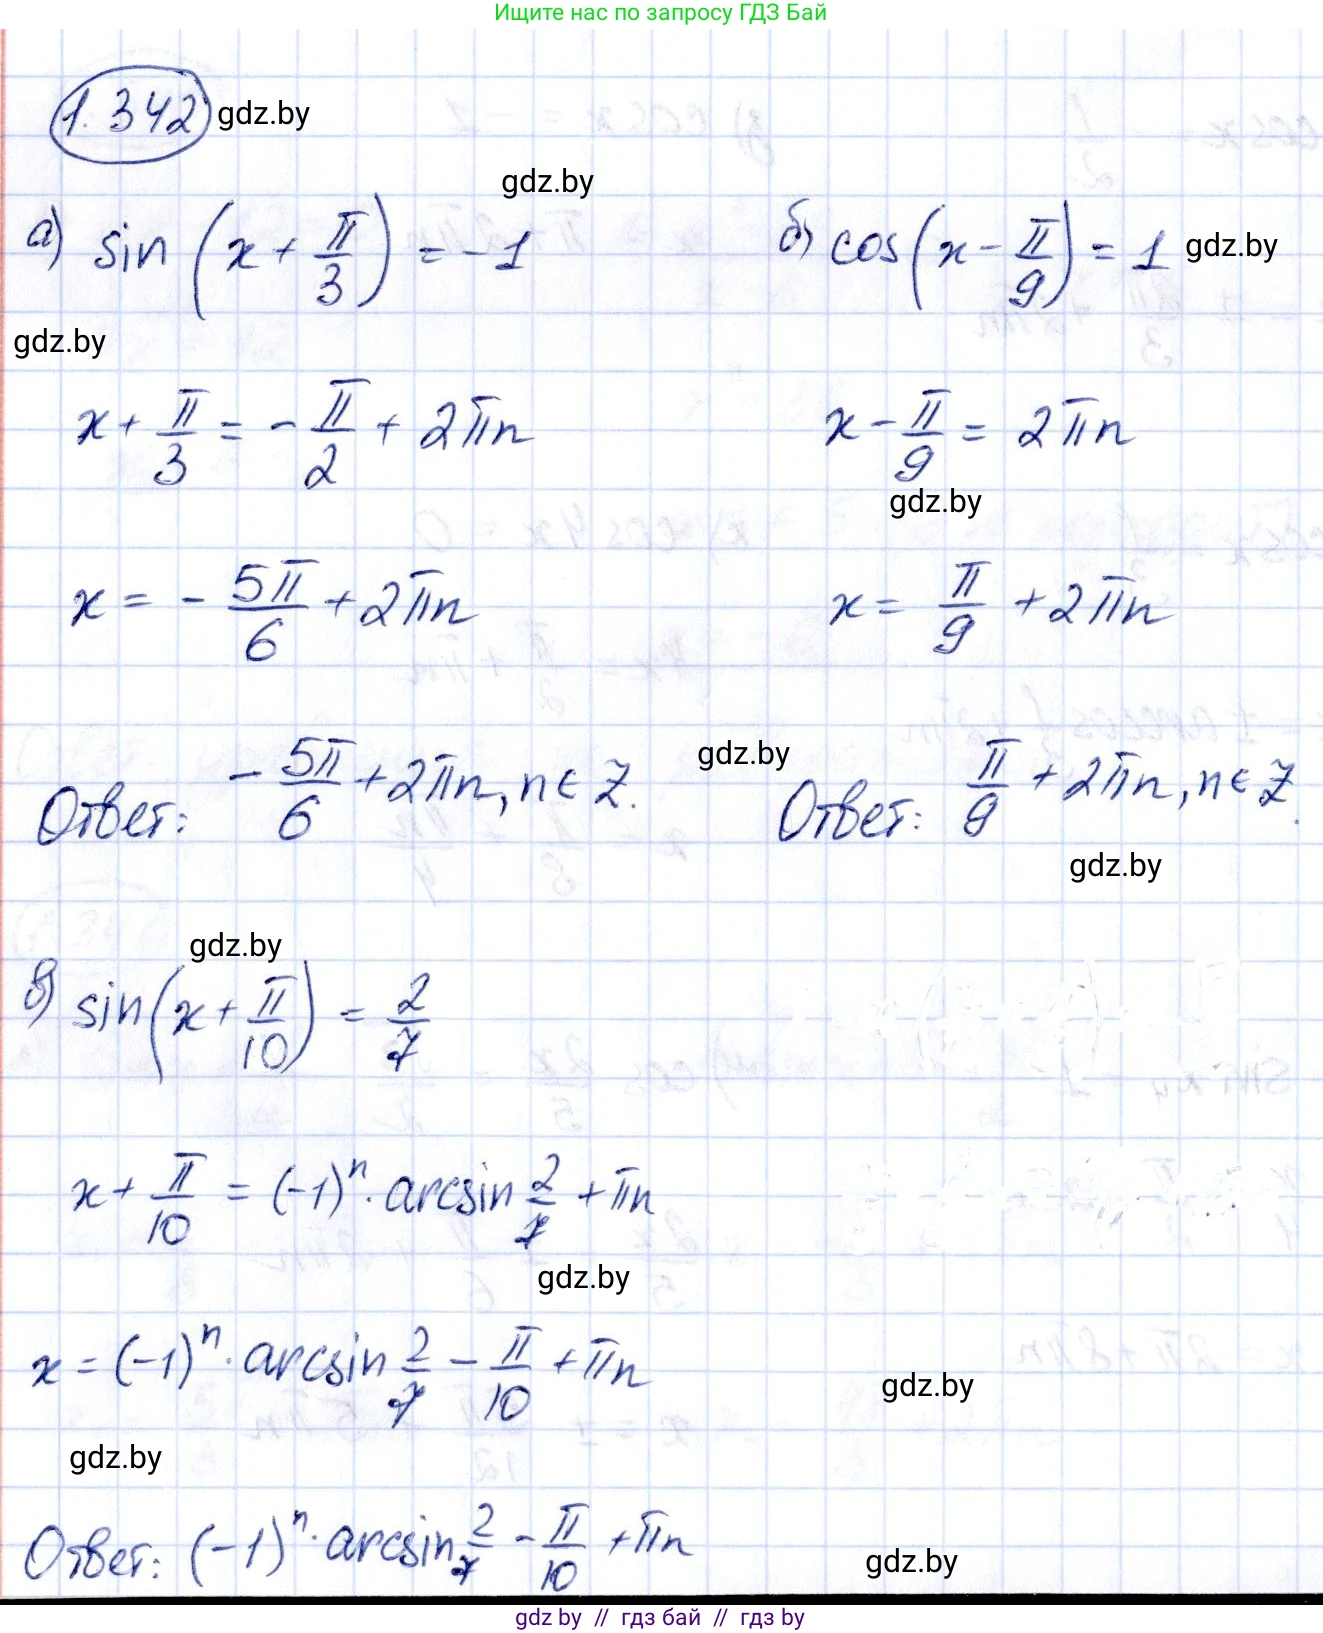 Ищите нас по запросу ГДЗ Бай
1.342 gdz.by
gdz.by
а) sin (x + π/3) = -1
б) cos (x - π/9) = 1 gdz.by
gdz.by
x + π/3 = - π/2 + 2πn
x - π/9 = 2πn
gdz.by
x = - 5π/6 + 2πn
x = π/9 + 2πn
gdz.by
Ответ: - 5π/6 + 2πn, n ∈ Z.
Ответ: π/9 + 2πn, n ∈ Z.
gdz.by
gdz.by
в) sin (x + π/10) = 2/7
x + π/10 = (-1)ⁿ · arcsin 2/7 + πn
gdz.by
x = (-1)ⁿ · arcsin 2/7 - π/10 + πn
gdz.by
gdz.by
Ответ: (-1)ⁿ · arcsin 2/7 - π/10 + πn
gdz.by
gdz by // гдз бай // gdz by